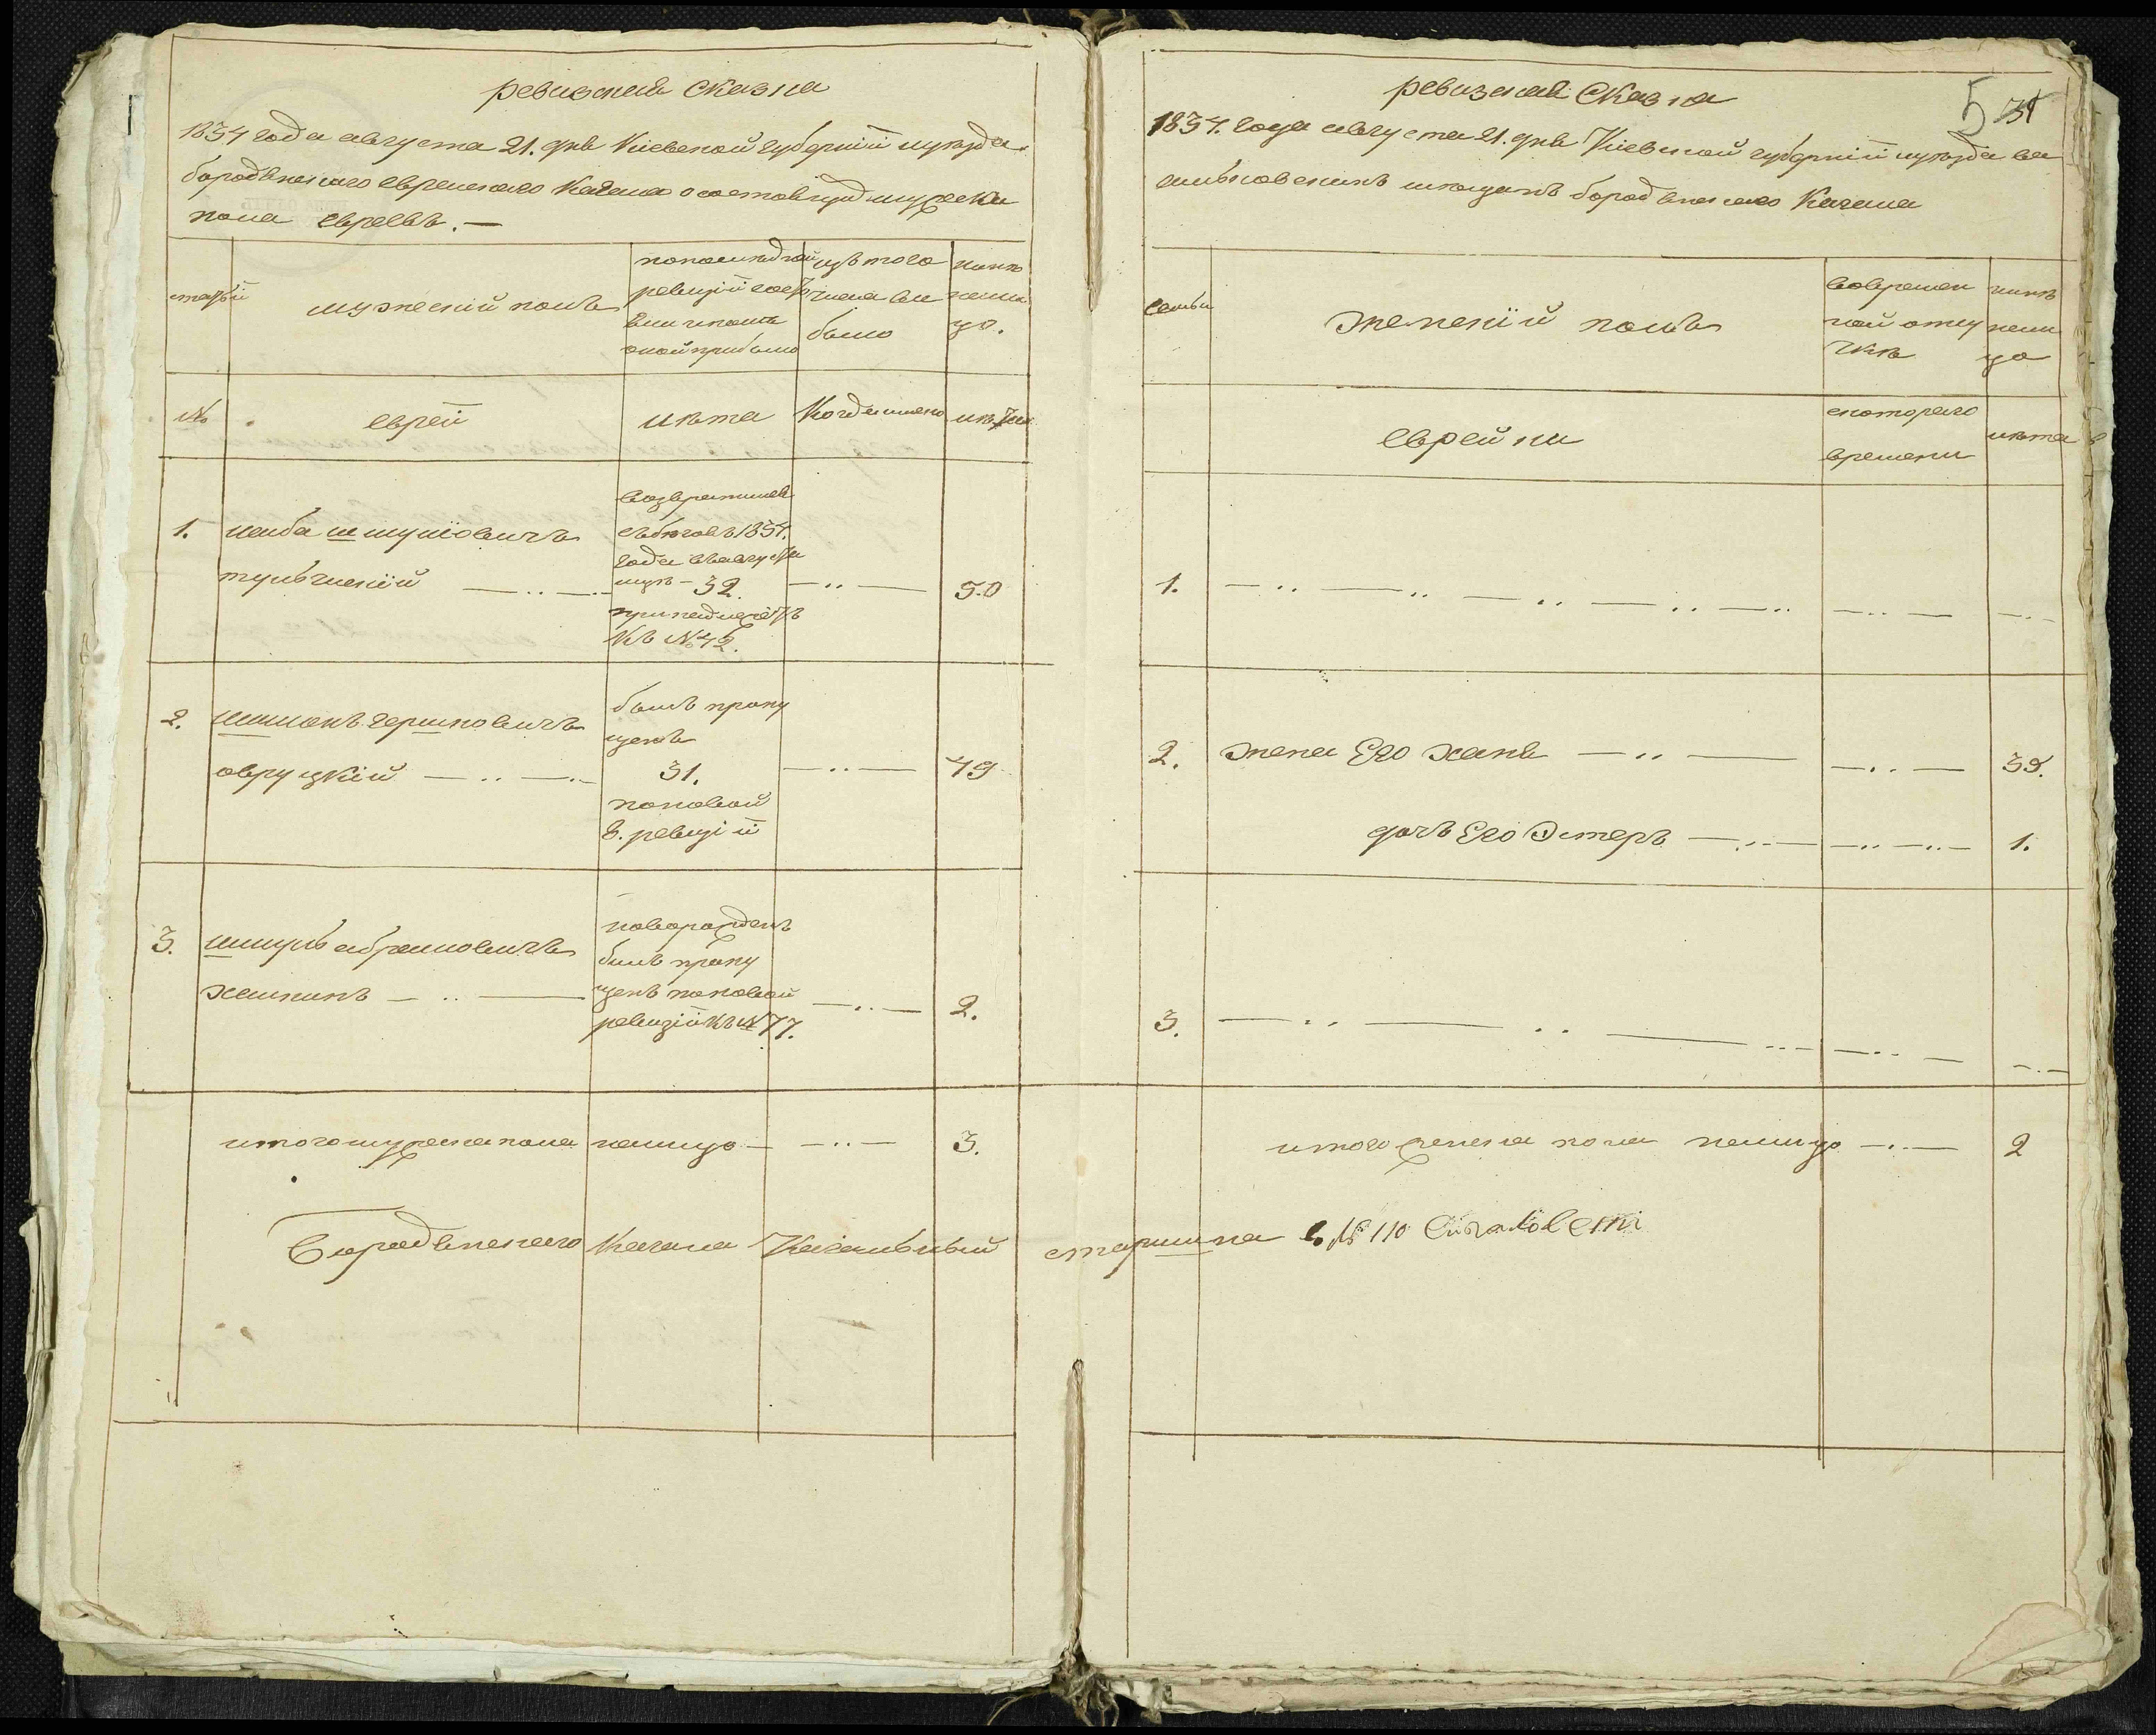 ревизская сказка
1834 года августа 21. дня Киевской губернии и уезда
бородянского еврейского Кагала о состоящих мужеска
пола евреевъ. —
семьи
мужеский полъ
по последней
ревизии состо
яли и после
оной прибыло
изъ того
числа вы
было
ныне
на ли
цо.
№
евреи
лета
Когда именно
лета
1.
лейба шмулiовичъ
тульчиский — .. —
возвратился
съ бегов 1834.
года въ августе
мце – 32.
принадлежитъ
Къ № 42.
— .. —
50
2.
шимонъ гершковичъ
овруцкiй — .. —
былъ пропу
щенъ
31.
по новой
8. ревизiи
— .. —
49
3.
шмуль абрамовичъ
хашкинъ — .. —
новорожденъ
былъ пропу
щенъ по новой
ревизiи къ № 77.
— .. —
2.
итого мужеска пола налицо — — .. — 3.
Бородянского Кагала Кагальный старшина
ревизская Сказка
5 31
1834. года августа 21. дня Киевской губернии и уезда ва
сильковскихъ мещанъ бородянского Кагала
семьи
женскiй полъ
во времен
ной отлу
чке
ныне
нали
цо
еврейки
с которого
времени
лета
1. — .. — .. — .. — .. — .. — .. —
2. жена Его хана — .. — — .. — 39.
дочь Его Эстеръ — .. — — .. — .. — 1.
3. — .. — .. — ... — .. — — .. —
итого женска пола налицо — .. — 2
№ 110